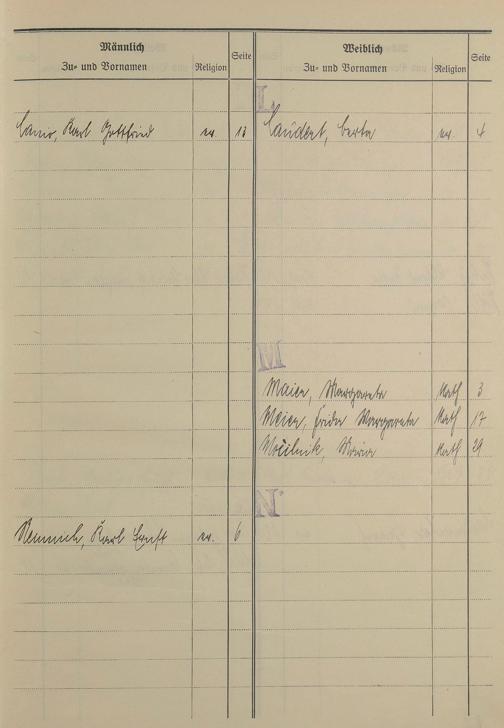 Männlich
Zu- und Vornamen
Religion
Seite
Weiblich
Zu- und Vornamen
Religion
Seite
L.
Karl Gottfried ev. 13
Laudert, Berta ev. 4
M
Maier, Margareta Kath 3
Meier, Frida Margareta Kath 17
Močilnik, Maria Kath 29
N.
Nemnich, Karl Ernst ev. 6